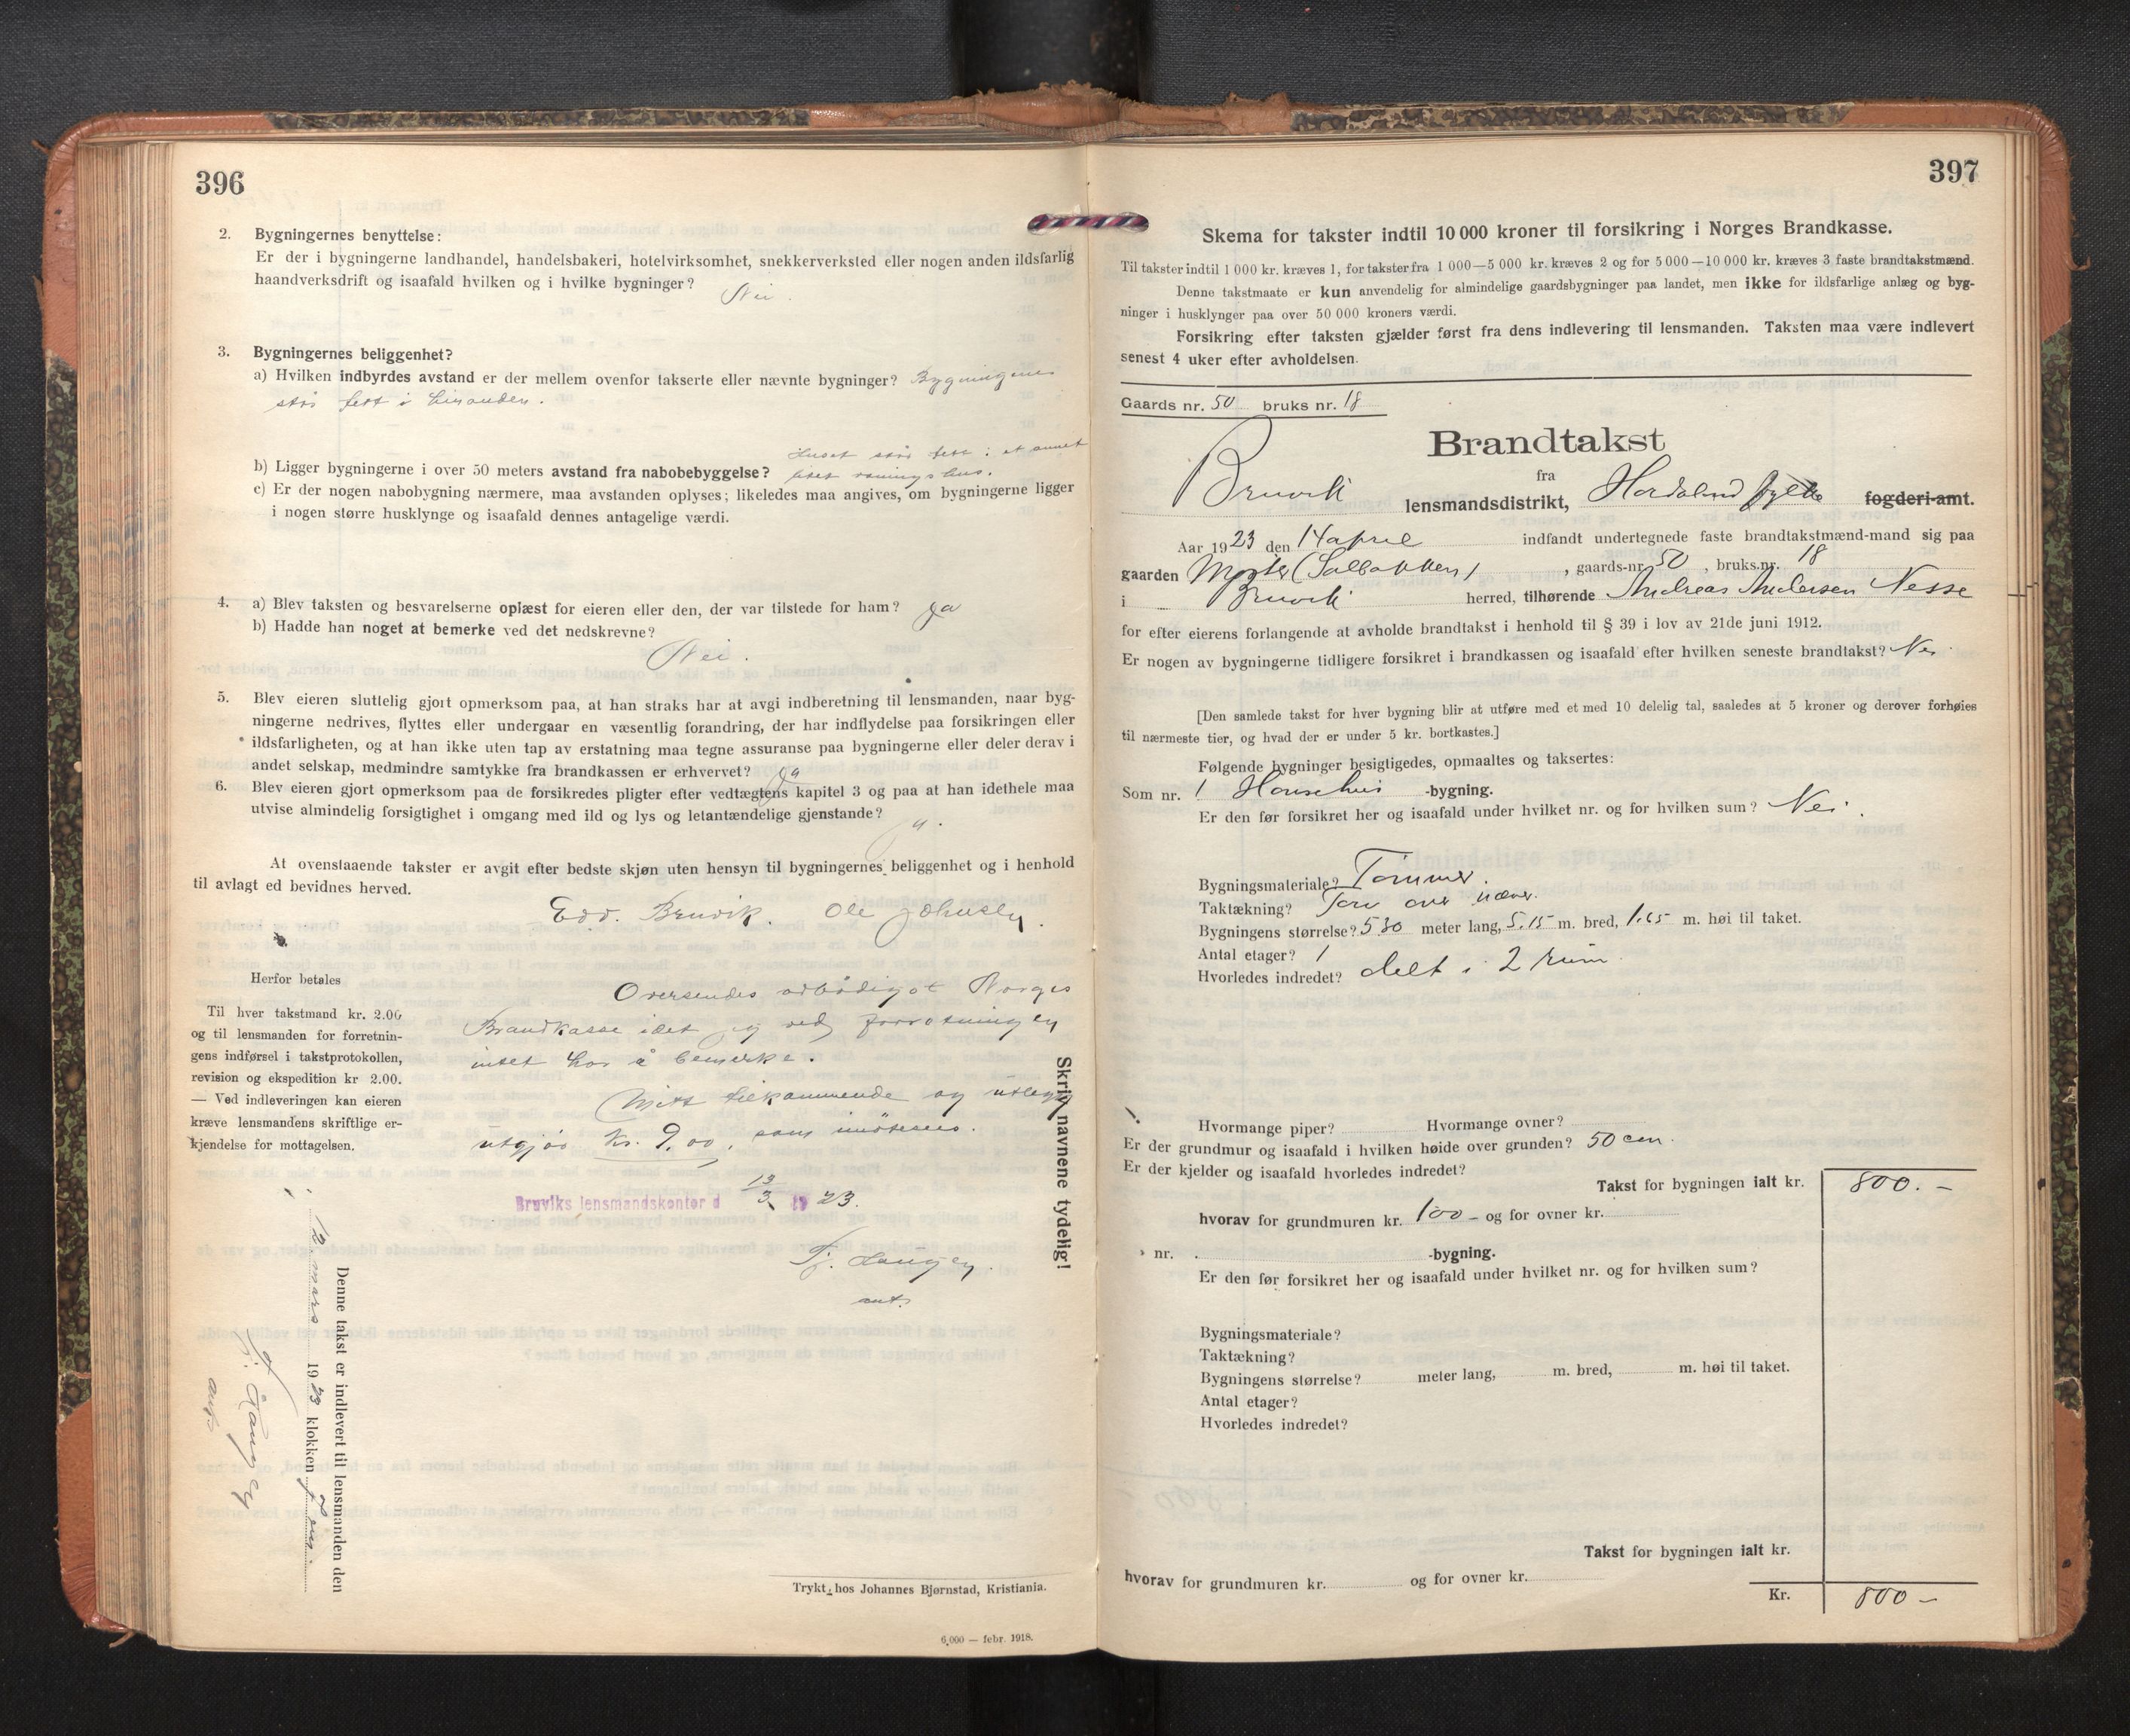 396
2. Bygningernes benyttelse:
Er der i bygningerne landhandel, handelsbakeri, hotelvirksomhet, snekkerverksted eller nogen anden ildsfarlig
haandverksdrift og isaafald hvilken og i hvilke bygninger?
Nei.
3. Bygningernes beliggenhet?
a) Hvilken indbyrdes avstand er der mellem ovenfor takserte eller nævnte bygninger? Bygningene
står tett i hinanden.
Huset står tett i et annet
b) Ligger bygningerne i over 50 meters avstand fra nabobebyggelse?
c) Er der nogen nabobygning nærmere, maa avstanden oplyses; likeledes maa angives, om bygningerne ligger
i nogen større husklynge og isaafald dennes antagelige værdi.
4. a) Blev taksten og besvarelserne oplæst for eieren eller den, der var tilstede for ham? Ja
b) Hadde han noget at bemerke ved det nedskrevne?
Nei.
5. Blev eieren sluttelig gjort opmerksom paa, at han straks har at avgi indberetning til lensmanden, naar byg-
ningerne nedrives, flyttes eller undergaar en væsentlig forandring, der har indflydelse paa forsikringen eller
ildsfarligheten, og at han ikke uten tap av erstatning maa tegne assuranse paa bygningerne eller deler derav i
andet selskap, medmindre samtykke fra brandkassen er erhvervet? Ja
6. Blev eieren gjort opmerksom paa de forsikredes pligter efter vedtægtens kapitel 3 og paa at han idethele maa
utvise almindelig forsigtighet i omgang med ild og lys og letantændelige gjenstande?
At ovenstaaende takster er avgit efter bedste skjøn uten hensyn til bygningernes beliggenhet og i henhold
til avlagt ed bevidnes herved.
Edv. Bruvik. Ole
Herfor betales
Til hver takstmand kr. 2.00
og til lensmanden for forretnin-
gens indførsel i takstprotokollen,
revision og ekspedition kr 2.00.
— Ved indleveringen kan eieren
kræve lensmandens skriftlige er-
kjendelse for mottagelsen.
Oversendes ærbødigst Norges
Brandkasse idet jeg ved forretningen
intet har å bemerke.
Mitt tilkommende og utlegg
utgjør kr. 9,00, som imøtesees.
Bruviks lensmandskontor d 13/3 19 23.
Skriv navnene tydelig!
Denne takst er indlevert til lensmanden den
12 mars 1923 klokken
Trykt hos Johannes Bjørnstad, Kristiania.
6,000 — febr. 1918.
397
Skema for takster indtil 10 000 kroner til forsikring i Norges Brandkasse.
Til takster indtil 1 000 kr. kræves 1, for takster fra 1 000—5 000 kr. kræves 2 og for 5 000—10 000 kr. kræves 3 faste brandtakstmænd.
Denne takstmaate er kun anvendelig for almindelige gaardsbygninger paa landet, men ikke for ildsfarlige anlæg og byg-
ninger i husklynger paa over 50 000 kroners værdi.
Forsikring efter taksten gjælder først fra dens indlevering til lensmanden. Taksten maa være indlevert
senest 4 uker efter avholdelsen.
Gaards nr. 50 bruks nr. 18
Brandtakst
fra
Bruvik lensmandsdistrikt, Hordaland fylke fogderi-amt.
Aar 1923 den 14 april indfandt undertegnede faste brandtakstmænd-mand sig paa
gaarden , gaards-nr. 50 , bruks.nr. 18
i Bruvik herred, tilhørende Andreas Andersen Nesse
for efter eierens forlangende at avholde brandtakst i henhold til § 39 i lov av 21de juni 1912.
Er nogen av bygningerne tidligere forsikret i brandkassen og isaafald efter hvilken seneste brandtakst? Nei
[Den samlede takst for hver bygning blir at utføre med et med 10 delelig tal, saaledes at 5 kroner og derover forhøies
til nærmeste tier, og hvad der er under 5 kr. bortkastes.]
Følgende bygninger besigtigedes, opmaaltes og taksertes:
Som nr. 1 -bygning.
Er den før forsikret her og isaafald under hvilket nr. og for hvilken sum? Nei.
Bygningsmateriale? Tømmer.
Taktækning? Torv over næver.
Bygningens størrelse? 5.30 meter lang, 5.15 m. bred, 1.65 m. høi til taket.
Antal etager? 1
Hvorledes indredet? delt i 2 rum
Hvormange piper? Hvormange ovner?
Er der grundmur og isaafald i hvilken høide over grunden? 50 cm.
Er der kjelder og isaafald hvorledes indredet?
Takst for bygningen ialt kr. 800.-
hvorav for grundmuren kr. 100 - og for ovner kr.
nr. -bygning.
Er den før forsikret her og isaafald under hvilket nr. og for hvilken sum?
Bygningsmateriale?
Taktækning?
Bygningens størrelse? meter lang, m. bred, m. høi til taket.
Antal etager?
Hvorledes indredet?
Takst for bygningen ialt kr.
hvorav for grundmuren kr. og for ovner kr.
Kr. 800 -